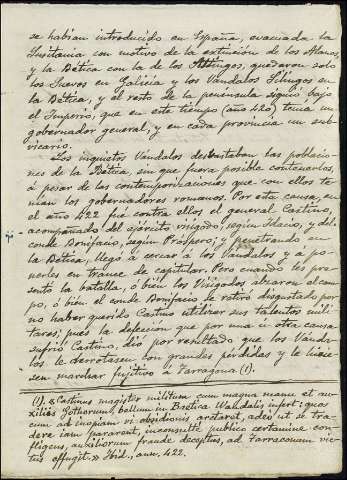 se habían introducido en España, evacuada la
Lusitania con motivo de la extinción de los Alanos,
y la Bética con la de los Silingos, quedaron solo
los Suevos en Galicia y los Vándalos Silingos en
la Bética, y el resto de la península siguió bajo
el Imperio, que en este tiempo (año 420) tenía un
gobernador general, y en cada provincia un sub-
vicario.
Los inquietos Vándalos devastaban las poblacio-
nes de la Bética, sin que fuera posible contenerlos,
á pesar de las contemporizaciones que con ellos te-
nían los gobernadores romanos. Por esta causa, en
el año 422 fué contra ellos el general Castino,
acompañado del ejército visigodo, según Idacio, y del
conde Bonifacio, según Próspero; y penetrando en
la Bética, llegó á cercar á los Vándalos y a po-
nerles en trance de capitular. Pero cuando les pre-
sentó la batalla, ó bien los Visigodos alzaron el cam-
po, ó bien el conde Bonifacio se retiró disgustado por
no haber querido Castino utilizar sus talentos mili-
tares; pues la defección que por una ú otra causa
sufrió Castino, dió por resultado que los Vánda-
los le derrotasen con grandes pérdidas y le hicie-
sen marchar fugitivo á Tarragona (1).
(1). «Castinus magister militum cum magna manu et au-
xiliis Gothorum, bellum in Baetica Wandalis infert: quos
cum ad inopiam vi obsidionis arctaret, adeo ut se tra-
dere iam pararent, inconsulte publico certamine con-
fligens, auxiliorum fraude deceptus, ad Tarraconam vic-
tus effugit.» Ibid., ann. 422.